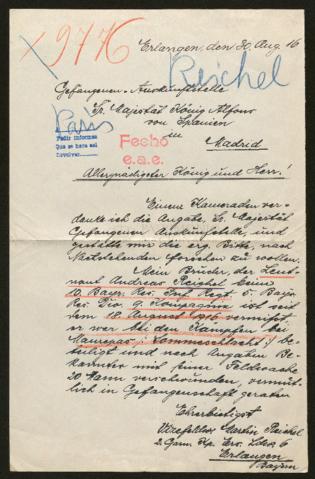 9776
Erlangen, den 30. Aug. 16
Reichel
Gefangenen-Auskunftstelle
Sr. Majestät König Alfons
von Spanien
in
Madrid
Paris
Pedir informes
Que se haga
Devolver
Fecho
e.a.e.
Allergnädigster König und Herr!
Einem Kameraden ver-
danke ich die Angabe, Sr. Majestät
Gefangenen Auskunftstelle, und
gestatte mir die erg. Bitte, nach
Nachstehenden forschen zu wollen.
Mein Bruder, der Leut-
nant Andreas Reichel beim
10. Bayr. Res. Inf. Regt. 5. Bayr.
Res. Div. 9. Kompagnie ist seit
dem 18. August 1916 vermißt,
er war bei den Kämpfen bei
Maurepas (Sommeschlacht) be-
teiligt und nach Angaben Be-
kannter mit seiner Feldwache
20 Mann verschwunden, vermut-
lich in Gefangenschaft geraten
Ehrerbietigst
Vizefeldw. Martin Reichel
2. Garn. Kp. Ers.
Erlangen
Bayern